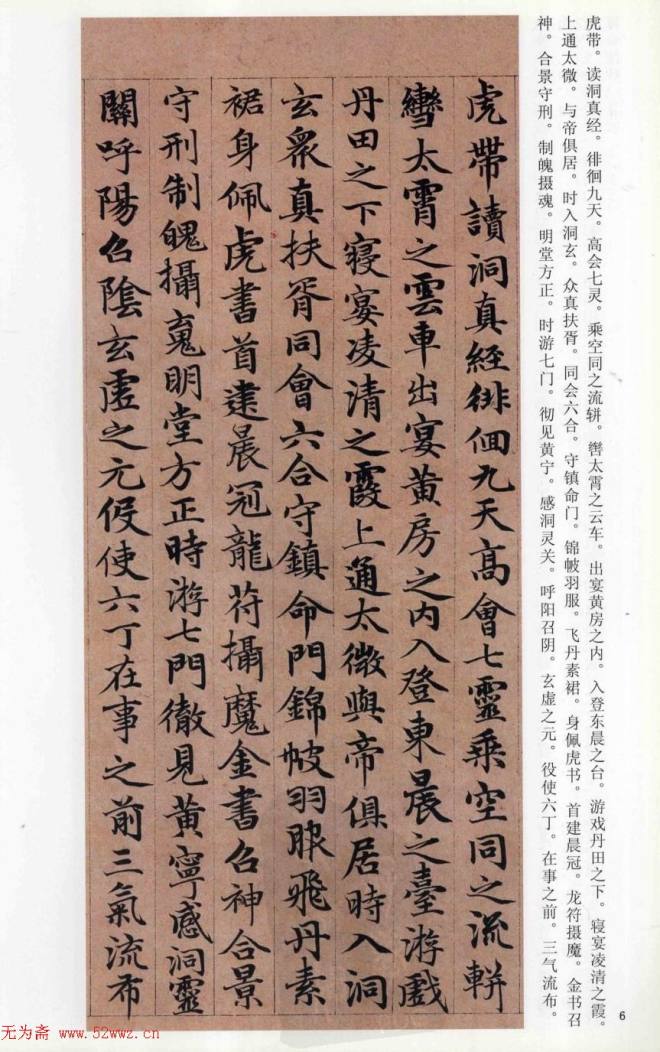 虎带。读洞真经。徘徊九天。高会七灵。乘空同之流軿。辔太霄之云车。出宴黄房之内。入登东晨之台。游戏丹田之下。寝宴凌清之霞。
上通太微。与帝俱居。时入洞玄。众真扶胥。同会六合。守镇命门。锦帔羽服。飞丹素裙。身佩虎书。首建晨冠。龙符摄魔。金书召
神。合景守刑。制魄摄魂。明堂方正。时游七门。彻见黄宁。感洞灵关。呼阳召阴。玄虚之元。役使六丁。在事之前。三气流布。
虎帶讀洞真經徘徊九天高會七靈乘空同之流軿
轡太霄之雲車出宴黃房之內入登東晨之臺游戲
丹田之下寢宴凌清之霞上通太微與帝俱居時入洞
玄眾真扶胥同會六合守鎮命門錦帔羽服飛丹素
裙身佩虎書首建晨冠龍苻攝魔金書召神合景
守刑制魄攝魂明堂方正時游七門徹見黃寧感洞靈
關呼陽召陰玄虛之元役使六丁在事之前三氣流布
6
无为斋 www.52wwz.cn